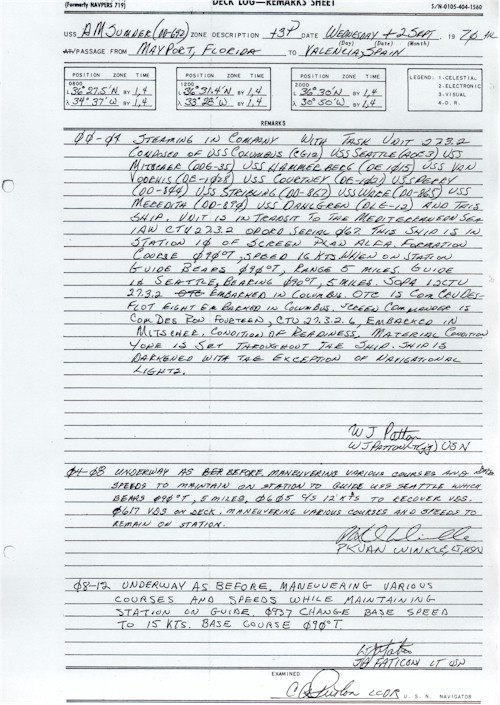 (Formerly NAVPERS 719)
DECK LOG—REMARKS SHEET
S/N-0105-404-1560
USS AM SUMNER (DD-692) ZONE DESCRIPTION +3P DATE WEDNESDAY 2 SEPT. 1970
(Day) (Date) (Month)
AT/PASSAGE FROM MAYPORT, FLORIDA TO VALENCIA, SPAIN
POSITION ZONE TIME
0800
L 36°27.5'N BY 1,4
λ 34°37'W BY 1,4
POSITION ZONE TIME
1200
L 36°31.4'N BY 1,4
λ 33°25'W BY 1,4
POSITION ZONE TIME
2000
L 36°30'N BY 1,4
λ 30°50'W BY 1,4
LEGEND: 1-CELESTIAL
2-ELECTRONIC
3-VISUAL
4-D. R.
REMARKS
00-04 STEAMING IN COMPANY WITH TASK UNIT 27.3.2
COMPOSED OF USS COLUMBUS (CG12) USS SEATTLE (AOE3) USS
MITSCHER (DDG-35) USS HAMMERBERG (DE 1015) USS VAN
VOORHIS (DE-1028) USS COURTNEY (DE-1021) USS PERRY
(DD-844) USS STRIBLING (DD-867) USS WORE (DD-865) USS
MEREDITH (DD-890) USS DAHLGREN (DLG-12) AND THIS
SHIP. UNIT IS IN TRANSIT TO THE MEDITERRANEAN SEA
IAW CTU 27.3.2 OPORD SERIAL 067. THIS SHIP IS IN
STATION 10 OF SCREEN PLAN ALFA. FORMATION
COURSE 090°T, SPEED 16 KTS WHEN ON STATION
GUIDE BEARS 090°T, RANGE 5 MILES. GUIDE
IS SEATTLE, BEARING 090°T, 5 MILES. SOPA IS CTU
27.3.2 OTC EMBARKED IN COLUMBUS. OTC IS COMCRUDES-
FLOT EIGHT EMBARKED IN COLUMBUS. SCREEN COMMANDER IS
COMDES RON FOURTEEN, CTU 27.3.2.6, EMBARKED IN
MITSCHER. CONDITION OF READINESS. MATERIAL CONDITION
YOKE IS SET THROUGHOUT THE SHIP. SHIP IS
DARKENED WITH THE EXCEPTION OF NAVIGATIONAL
LIGHTS.
WJ Patton
WJ PATTON LT(jg) USN
04-08 UNDERWAY AS BEFORE. MANEUVERING VARIOUS COURSES AND
SPEEDS TO MAINTAIN ON STATION TO GUIDE USS SEATTLE WHICH
BEARS 090°T, 5 MILES, 0605 C/S 12 KTS TO RECOVER VDS.
0617 VDS ON DECK. MANEUVERING VARIOUS COURSES AND SPEEDS TO
REMAIN ON STATION.
PK VAN WINKLE, LT, USN
08-12 UNDERWAY AS BEFORE. MANEUVERING VARIOUS
COURSES AND SPEEDS WHILE MAINTAINING
STATION ON GUIDE. 0937 CHANGE BASE SPEED
TO 15 KTS. BASE COURSE 090°T.
JA FATICONI LT USN
EXAMINED
LCDR U. S. N. NAVIGATOR